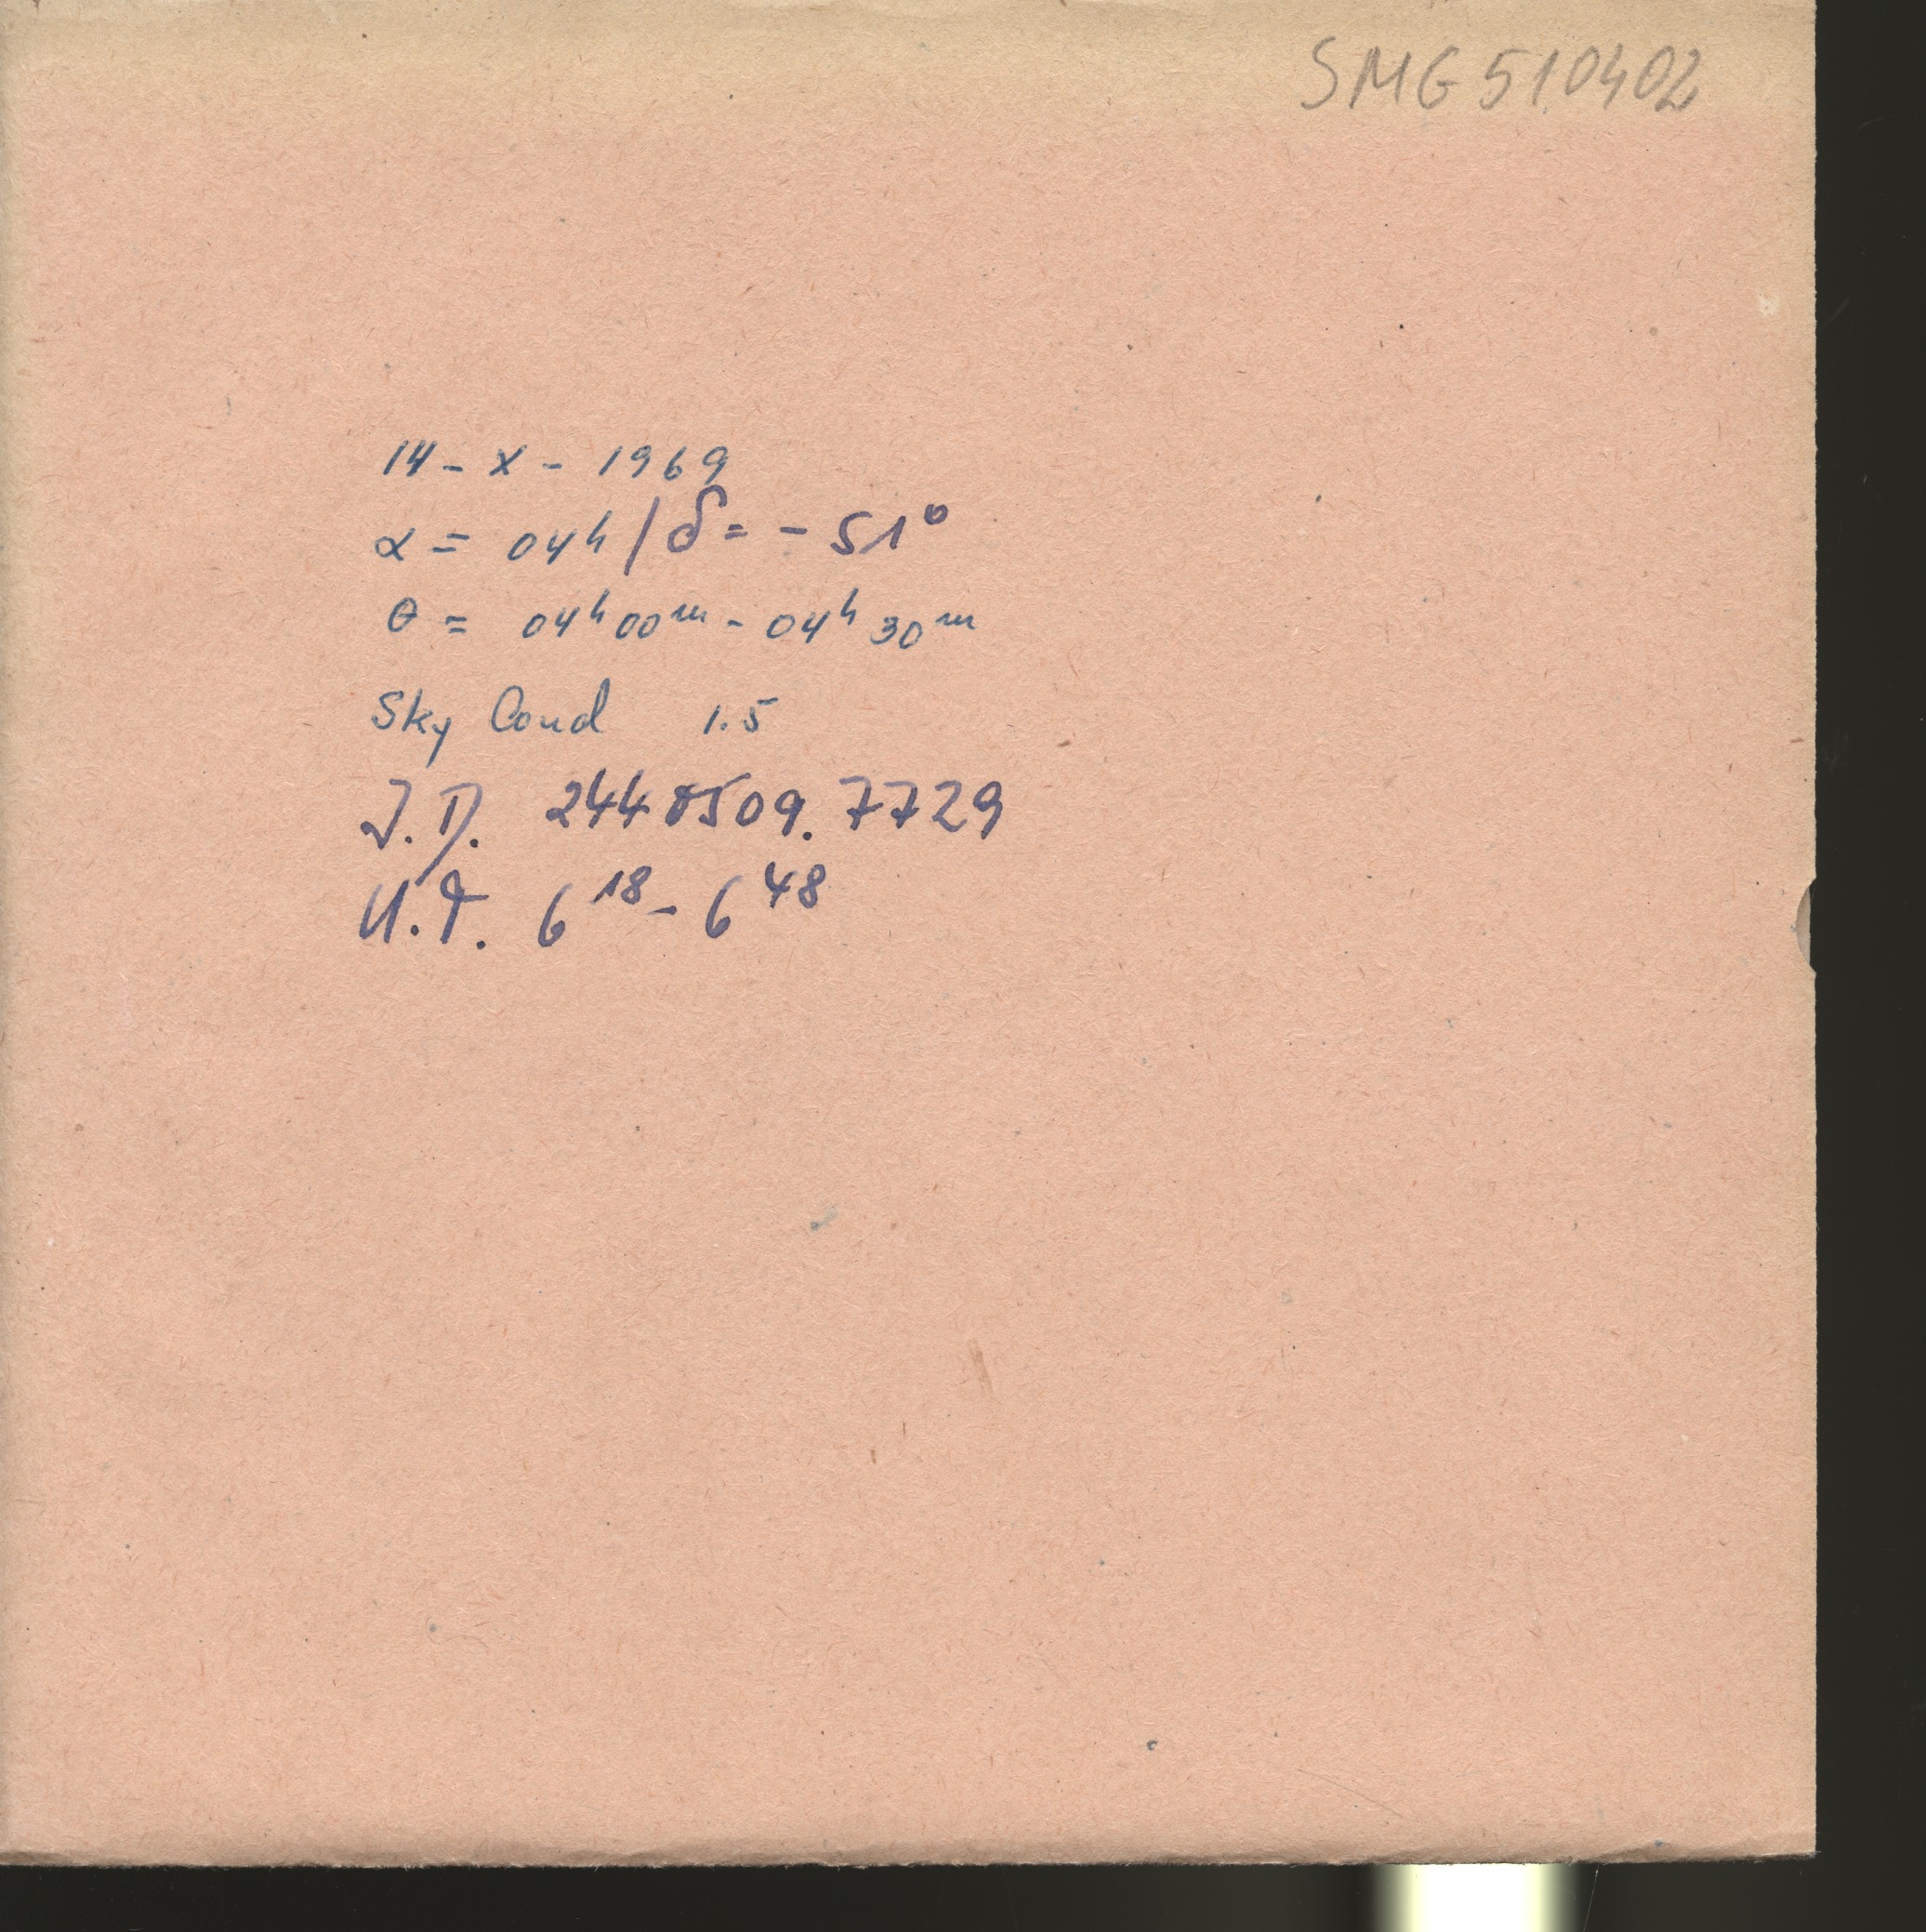 SMG 510402
14 - X - 1969
α = 04ʰ / δ = - 51°
θ = 04ʰ 00ᵐ - 04ʰ 30ᵐ
Sky Cond 1.5
J.D. 2440509.7729
U.T. 6¹⁸ - 6⁴⁸